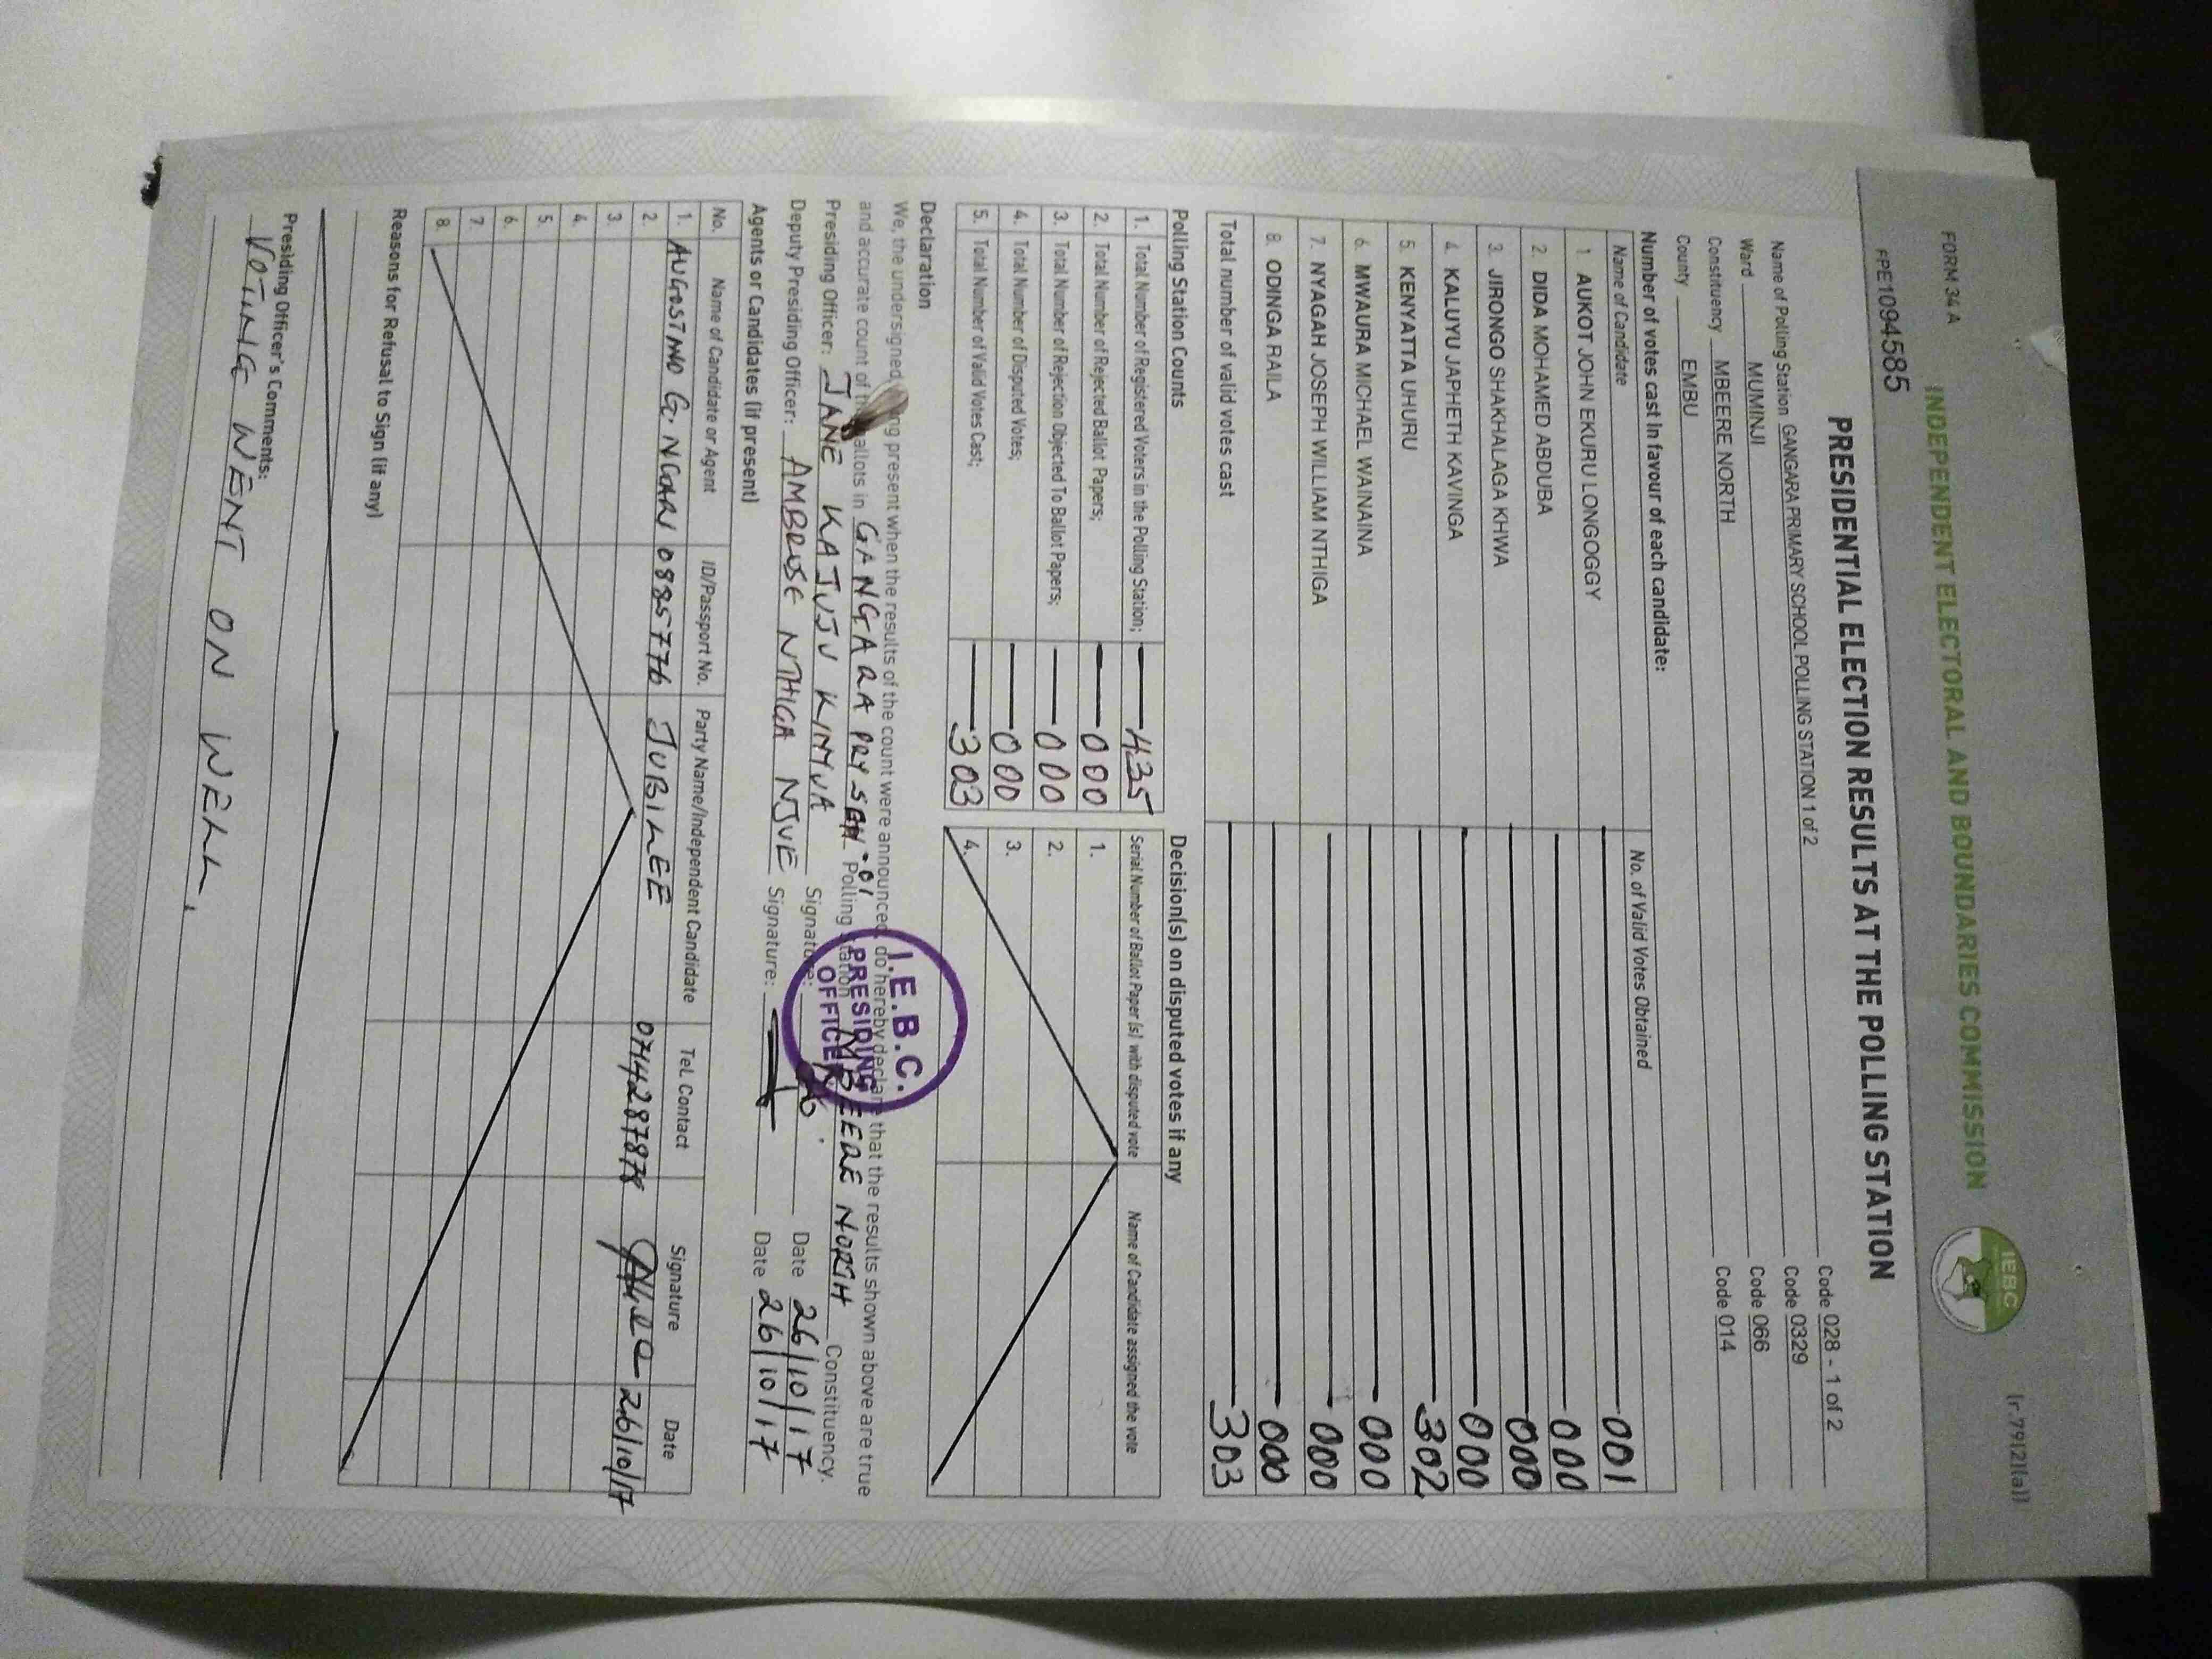 FORM 34 A
[r.79(2)(a)]
INDEPENDENT ELECTORAL AND BOUNDARIES COMMISSION
IEBC
PPE1094585
PRESIDENTIAL ELECTION RESULTS AT THE POLLING STATION
Name of Polling Station GANGARA PRIMARY SCHOOL POLLING STATION 1 of 2 Code 028 - 1 of 2
Ward MUMINJI Code 0329
Constituency MBEERE NORTH Code 066
County EMBU Code 014
Number of votes cast in favour of each candidate:
Name of Candidate No. of Valid Votes Obtained
1 AUKOT JOHN EKURU LONGOGGY 001
2. DIDA MOHAMED ABDUBA 000
3. JIRONGO SHAKHALAGA KHWA 000
4. KALUYU JAPHETH KAVINGA 000
5. KENYATTA UHURU 302
6. MWAURA MICHAEL WAINAINA 000
7. NYAGAH JOSEPH WILLIAM NTHIGA 000
8. ODINGA RAILA 000
Total number of valid votes cast 303
Polling Station Counts
1. Total Number of Registered Voters in the Polling Station; 435
2. Total Number of Rejected Ballot Papers; 000
3. Total Number of Rejection Objected To Ballot Papers; 000
4. Total Number of Disputed Votes; 000
5. Total Number of Valid Votes Cast; 303
Decision(s) on disputed votes if any
Serial Number of Ballot Paper (s) with disputed vote Name of Candidate assigned the vote
1.
2.
3.
4.
Declaration
We, the undersigned being present when the results of the count were announced, do hereby declare that the results shown above are true
and accurate count of the ballots in GANGARA PRY SCH - 01 Polling Station MBEERE NORTH Constituency.
Presiding Officer: JANE KAJUJU KINYUA Signature: Date 26/10/17
Deputy Presiding Officer: AMBROSE NTHIGA NJUE Signature: Date 26/10/17
I.E.B.C.
PRESIDING
OFFICER
Agents or Candidates (if present)
No. Name of Candidate or Agent ID/Passport No. Party Name/Independent Candidate Tel. Contact Signature Date
1. AUGOSTINO G. NGARI 0885776 JUBILEE 0714287878 26/10/17
2.
3.
4.
5.
6.
7.
8.
Reasons for Refusal to Sign (if any)
Presiding Officer's Comments:
VOTING WENT ON WELL.